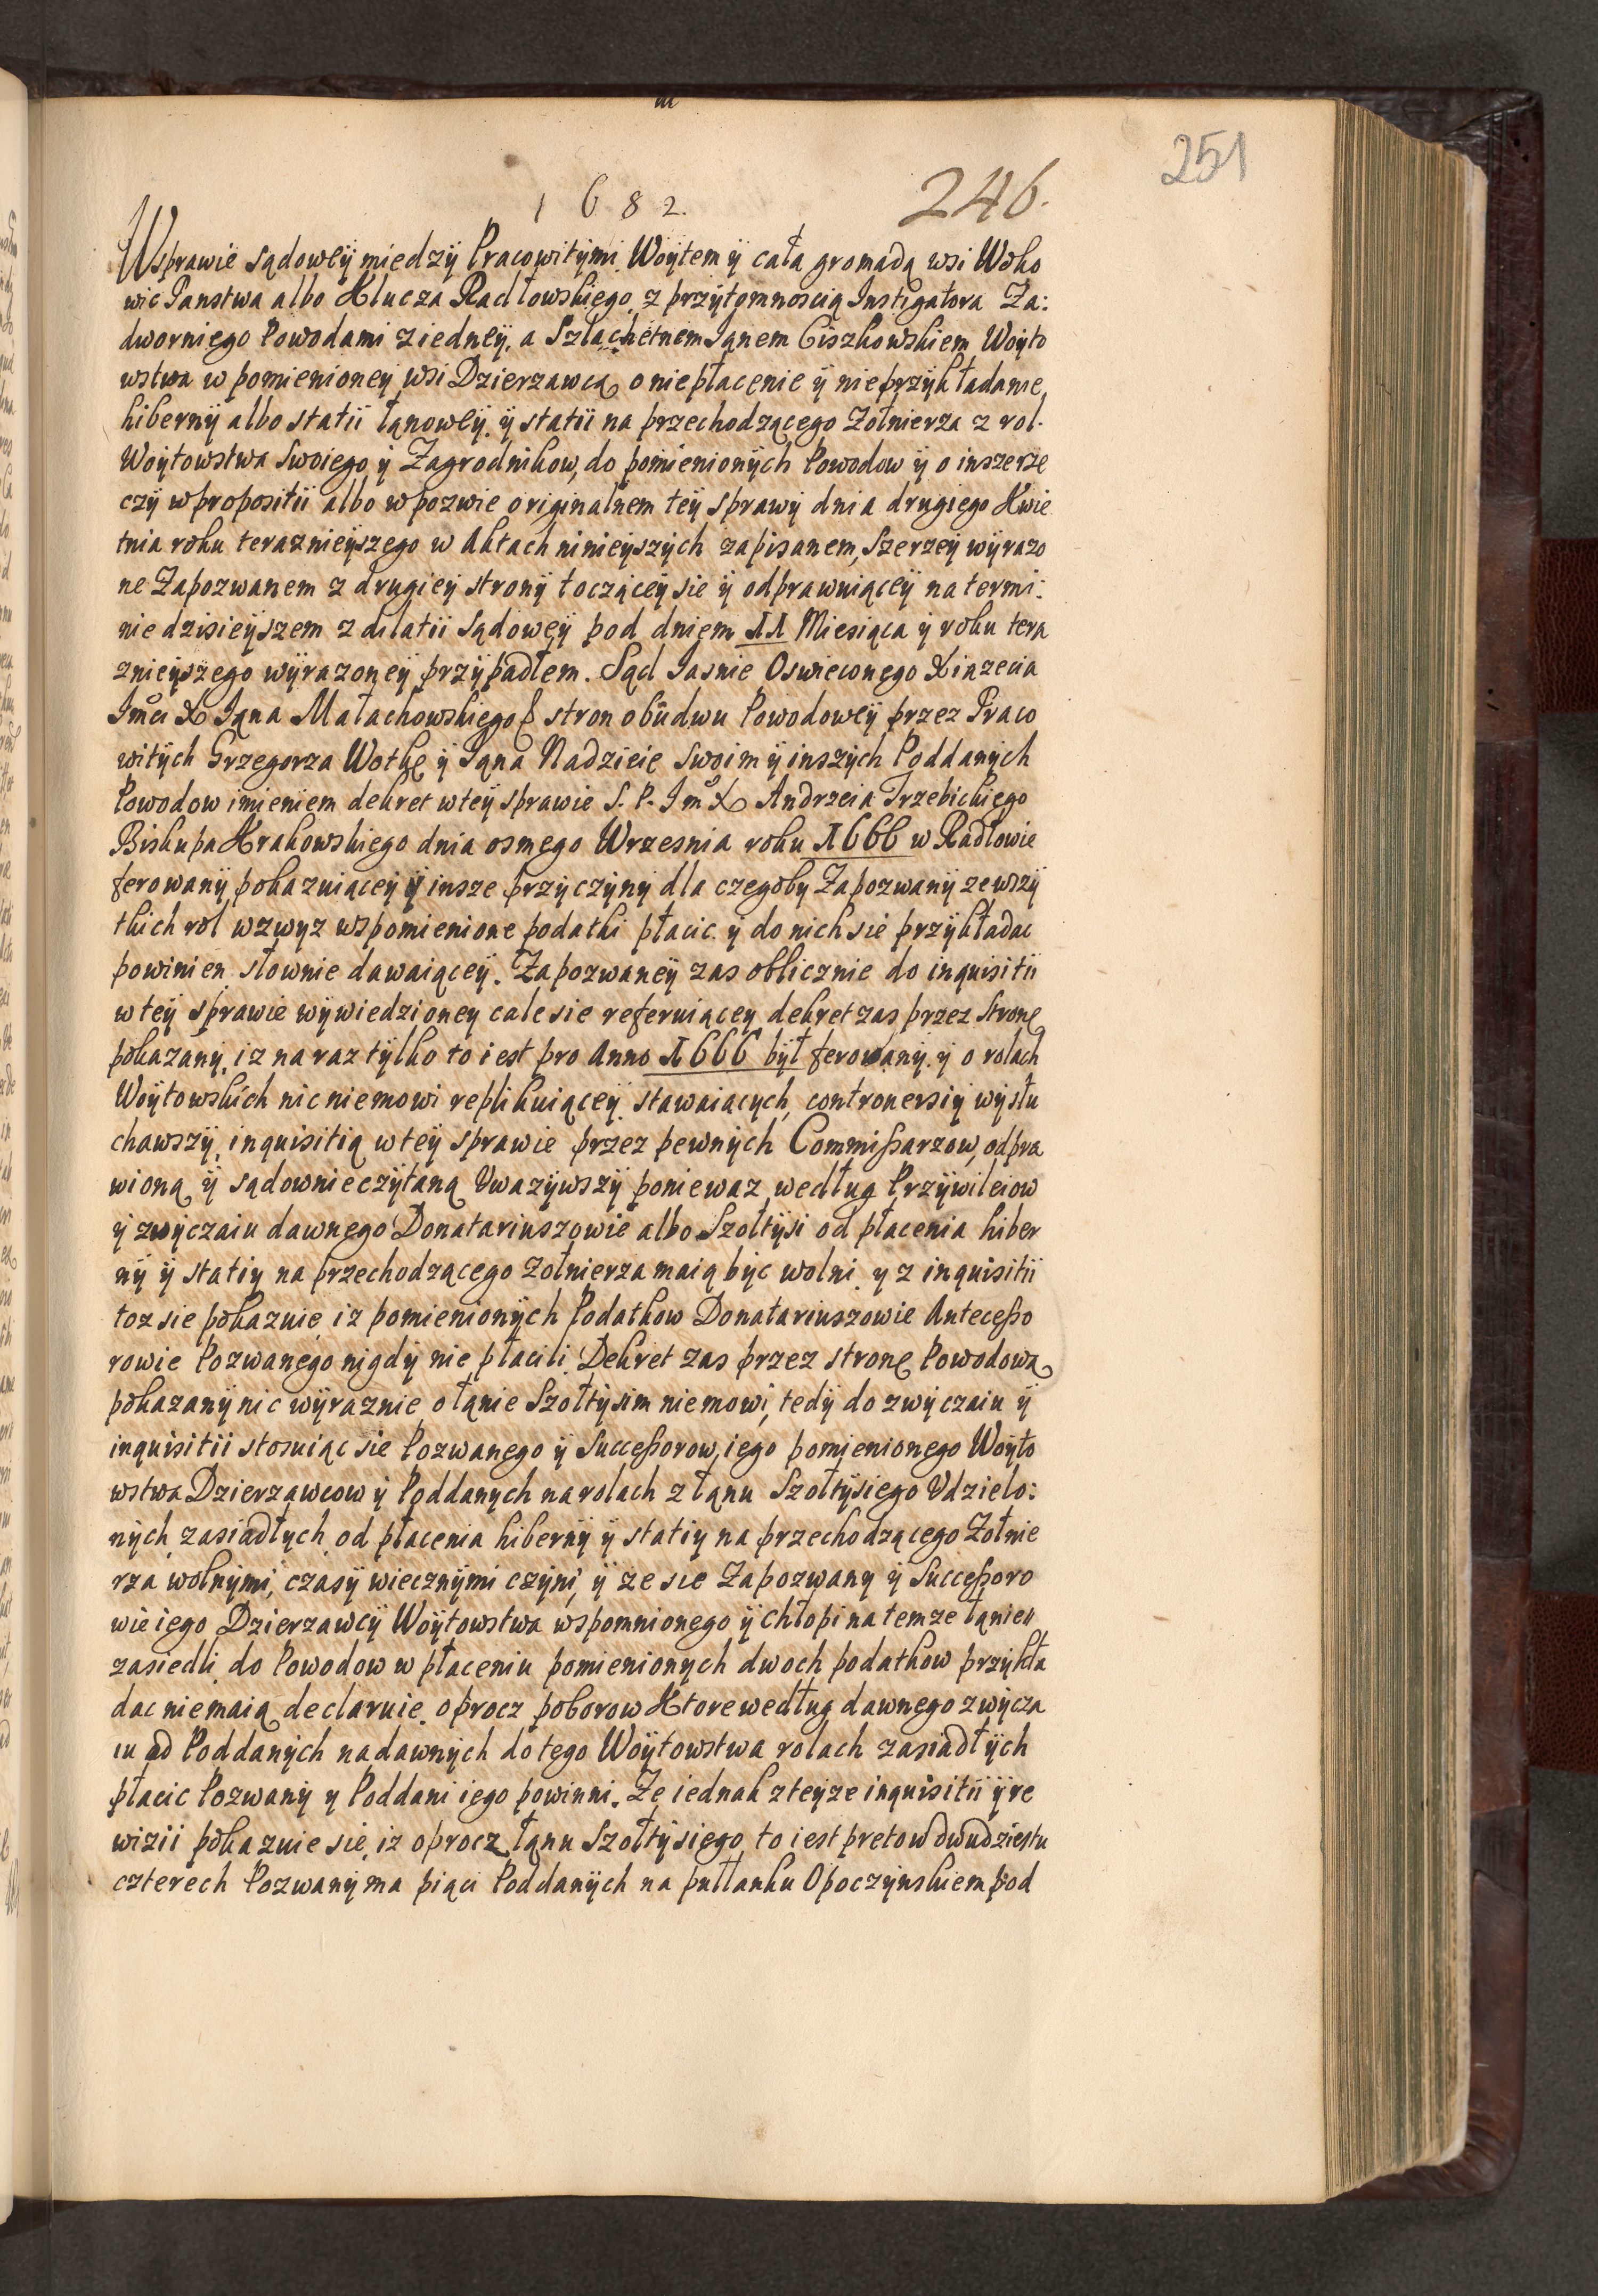 251
246.
1682.
Wsprawie sądowey miedzy Pracowitymi Woytem y cała gromadą wsi Woko
wic Panstwa albo Klucza Radłowskiego z przytomnoscią Instigatora Za:
dworniego Powodami z iedney, a Szlachetnem Janem Ciszkowskiem Woyto
wstwa w pomienioney wsi Dzierzawcą o niepłacenie y nieprzykładanie
hiberny albo statii łanowey y statii na przechodzącego Zołnierza z rol.
Woytowstwa Swoiego y Zagrodnikow, do pomienionych Powodow y o insze rze
czy w propositii albo w pozwie originalnem tey sprawy dnia drugiego Kwie
tnia roku teraznieyszego w Aktach ninieyszych zapisanem, Szerzey wyrazo
ne Zapozwanem z drugiey strony toczącey sie y odprawuiącey na termi:
nie dzisieyszem z dilatii sądowey pod dniem 11 Miesiąca y roku tera
znieyszego wyrazoney przypadłem. Sąd Jasnie Oswieconego Xiązecia
Jmci X Jana Małachowskiego stron obudwu Powodowey przez Praco
witych Grzegorza Wotkę y Jana Nadzieię Swoim y inszych Poddanych
Powodow imieniem dekret w tey sprawie S. P. Jm X Andrzeia Trzebickiego
Biskupa Krakowskiego dnia osmego Wrzesnia roku 1666 w Radłowie
ferowany pokazuiącey y insze przyczyny dla czegoby Zapozwany ze wszy
tkich rol wzwyz wspomienione podatki płacic y do nich sie przykładac
powinien słownie dawaiącey. Zapozwaney zas oblicznie do inquisitii
w tey sprawie wywiedzioney cale sie referuiącey dekret zas przez Stronę
pokazany, iz na raz tylko to iest pro Anno 1666 był ferowany y o rolach
Woytowskich nic niemowi replikuiącey stawaiących controuersiy wysłu
chawszy, inquisitią w tey sprawie przez pewnych Commissarzow, odpra
wioną y sądownie czytaną Uwazywszy poniewaz według Przywileiow
y zwyczaiu dawnego Donatariuszowie albo Szołtysi od płacenia hiber
ny y statiy na przechodzącego Zołnierza maią byc wolni y z inquisitii
toz sie pokazuie iz pomienionych Podatkow Donatariuszowie Antecesso
rowie Pozwanego nigdy nie płacili Dekret zas przez stronę Powodową
pokazany nic wyraznie o łanie Szołtysim niemowi, tedy do zwyczaiu y
inquisitii stosuiąc sie Pozwanego y Successorow, iego pomienionego Woyto
wstwa Dzierzawcow y Poddanych na rolach z łanu Szołtysiego Udzielo:
nych zasiadłych od płacenia hiberny y statiy na przechodzącego Zołnie
rza wolnymi, czasy wiecznymi czyni, y ze sie Zapozwany y Successoro
wie iego Dzierzawcy Woytowstwa wspomnionego y chłopi na temze łaniu
zasiedli do Powodow w płaceniu pomienionych dwoch podatkow przykła
dac niemaią declaruie oprocz poborow Ktore według dawnego zwycza
iu od Poddanych nadawnych do tego Woytowstwa rolach zasiadłych
płacic Pozwany y Poddani iego powinni. Ze iednak z teyze inquisitii y re
wizii pokazuie sie, iz oprocz łanu Szołtysiego to iest pretow dwudziestu
czterech Pozwany ma piąci Poddanych na pułłanku Opoczynskiem pod